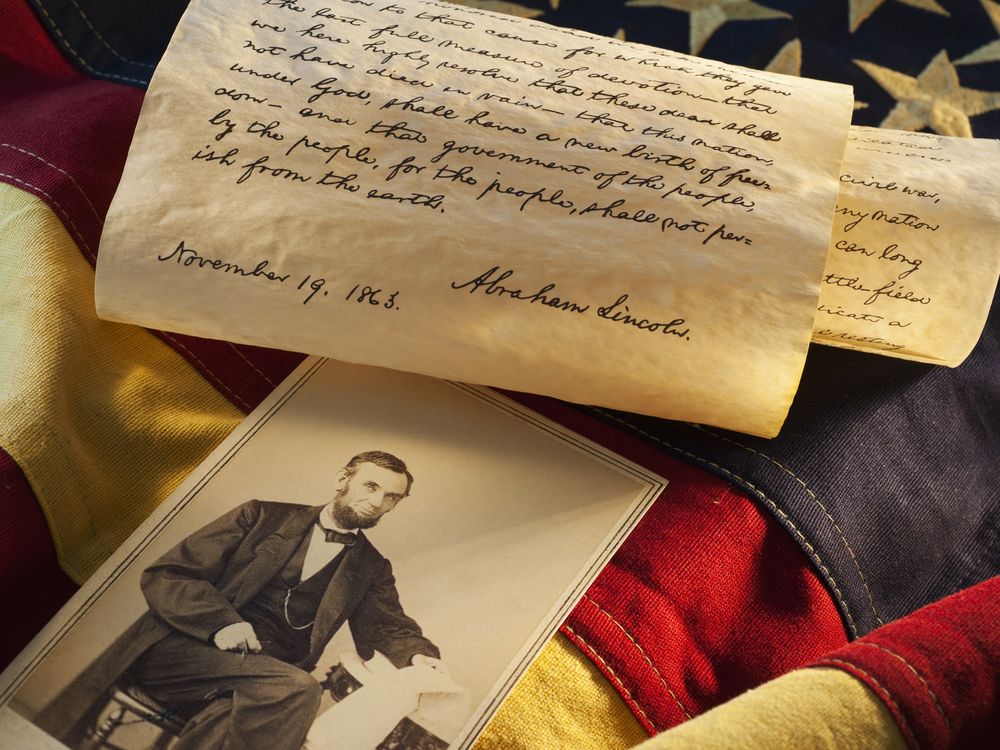 to that cause for which they gave
the last full measure of devotion—that
we here highly resolve that these dead shall
not have died in vain—that this nation,
under God, shall have a new birth of free-
dom—and that government of the people,
by the people, for the people, shall not per-
ish from the earth.
November 19. 1863.
Abraham Lincoln.
civil war,
any nation
can long
ttle-field
dicate a
resting